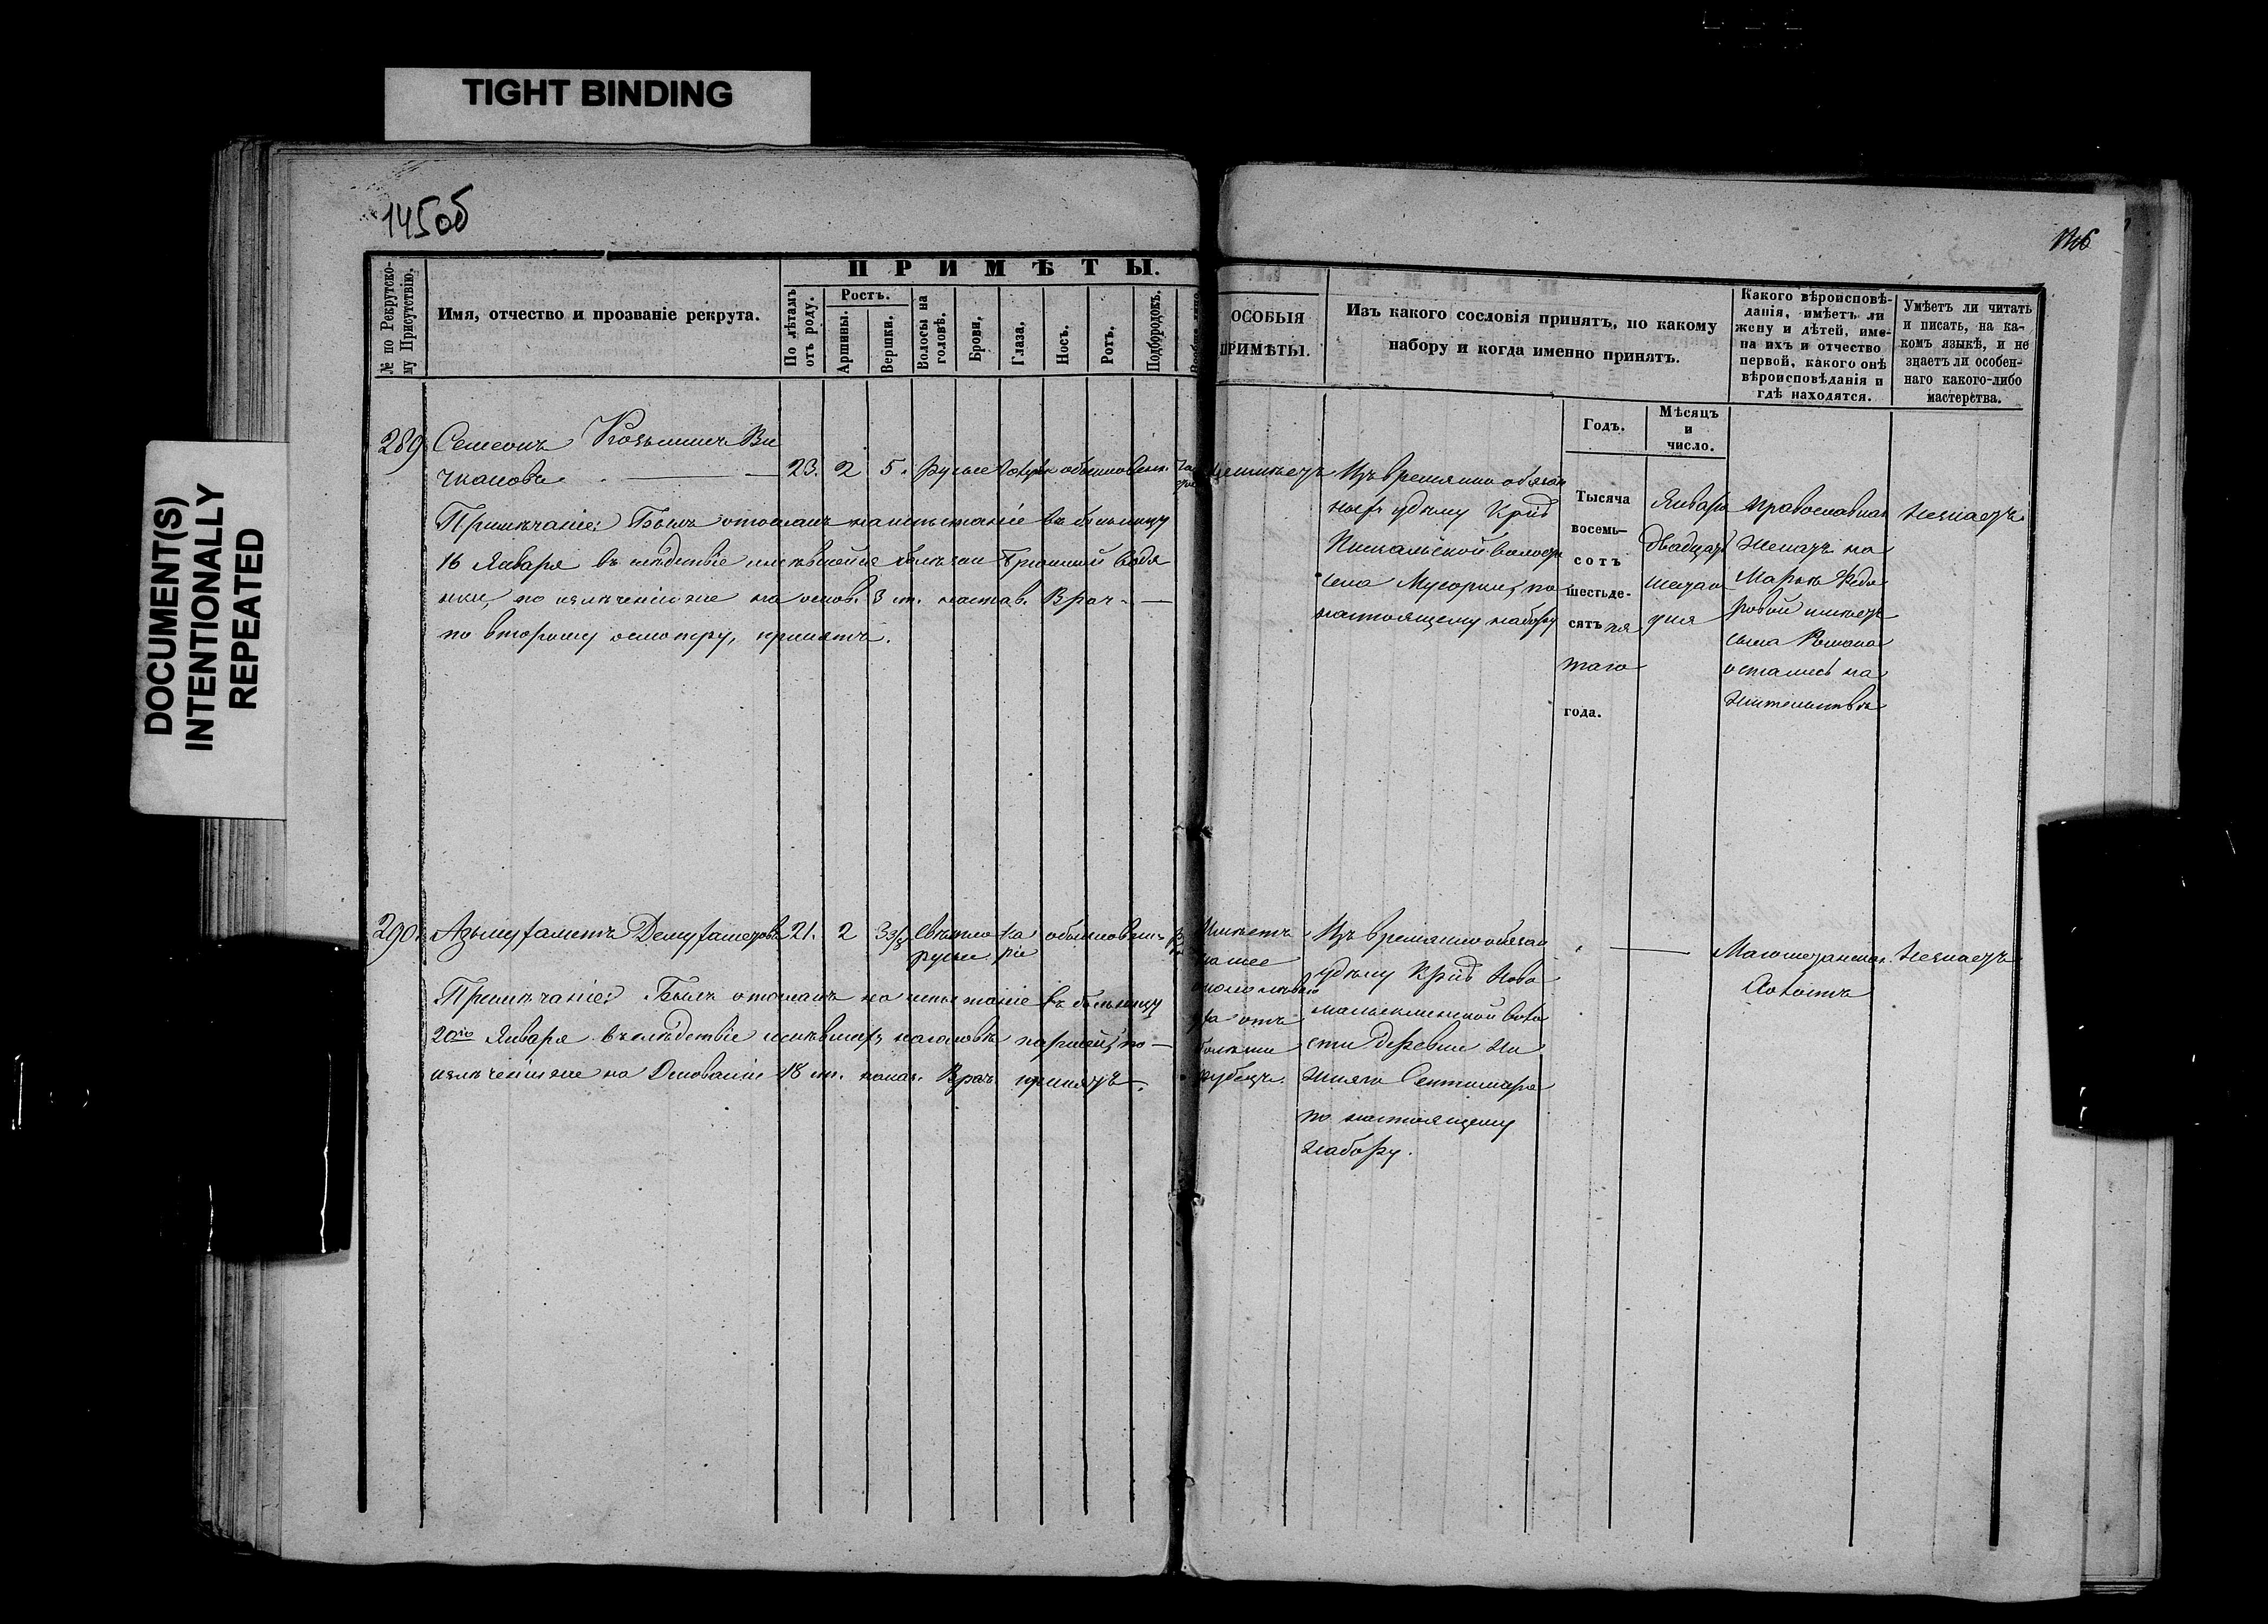 TIGHT BINDING
DOCUMENT(S)
INTENTIONALLY
REPEATED
145об
146
№ по Рекрутско-
му Присутствію.
Имя, отчество и прозваніе рекрута.
ПРИМѢТЫ.
По лѣтамъ
отъ роду.
Ростъ.
Аршины.
Вершки.
Волосы на
головѣ.
Брови.
Глаза.
Носъ.
Ротъ.
Подбородокъ.
ОСОБЫЯ
ПРИМѢТЫ.
Изъ какого сословія принятъ, по какому
набору и когда именно принятъ.
Годъ.
Мѣсяцъ
и
число.
Какого вѣроисповѣ-
данія, имѣетъ ли
жену и дѣтей, име-
на ихъ и отчество
первой, какого онѣ
вѣроисповѣданія и
гдѣ находятся.
Умѣетъ ли читать
и писать, на ка-
комъ языкѣ, и не
знаетъ ли особен-
наго какого-либо
мастерства.
289 Семенъ Козьминъ Ви
чкановъ 23. 2 5. русые обыкновен.
Примѣчаніе: Былъ отосланъ на испытаніе въ больницу
16 Января въ слѣдствіе имѣвшейся болѣзни водя
нки, по излѣченіи же на основ. 3 ст. настав. Врач.
по второму осмотру, принятъ.
Изъ временно обязан
ныхъ удѣлу Крід
волости
села Мусорки, по
настоящему набору
Тысяча
восемь-
сотъ
шестьде-
сятъ пя
таго
года.
Января
двадцать
дня
православнаго
Женатъ на
Марьѣ Федо
ровой имѣетъ
сына Романа
остались на
жительствѣ
Незнаетъ
290. 21. 2 3 3/8 Свѣтло ка обыкновен.
русые ріе
Примѣчаніе: Былъ отосланъ на испытаніе въ больницу
20го Января въ слѣдствіе имѣвшихъ на головѣ паршей, по
излѣченіи же на Основаніи 18 ст. наст. Врач. принятъ.
Имѣетъ
на шее
около лѣваго
уха отъ
болѣзни
рубецъ.
Изъ временно обязан
удѣлу Крід Ново
малыклинской воло
сти деревни Ни
жняго Сентимира
по настоящему
набору.
Магометанскаго
Холостъ
Незнаетъ